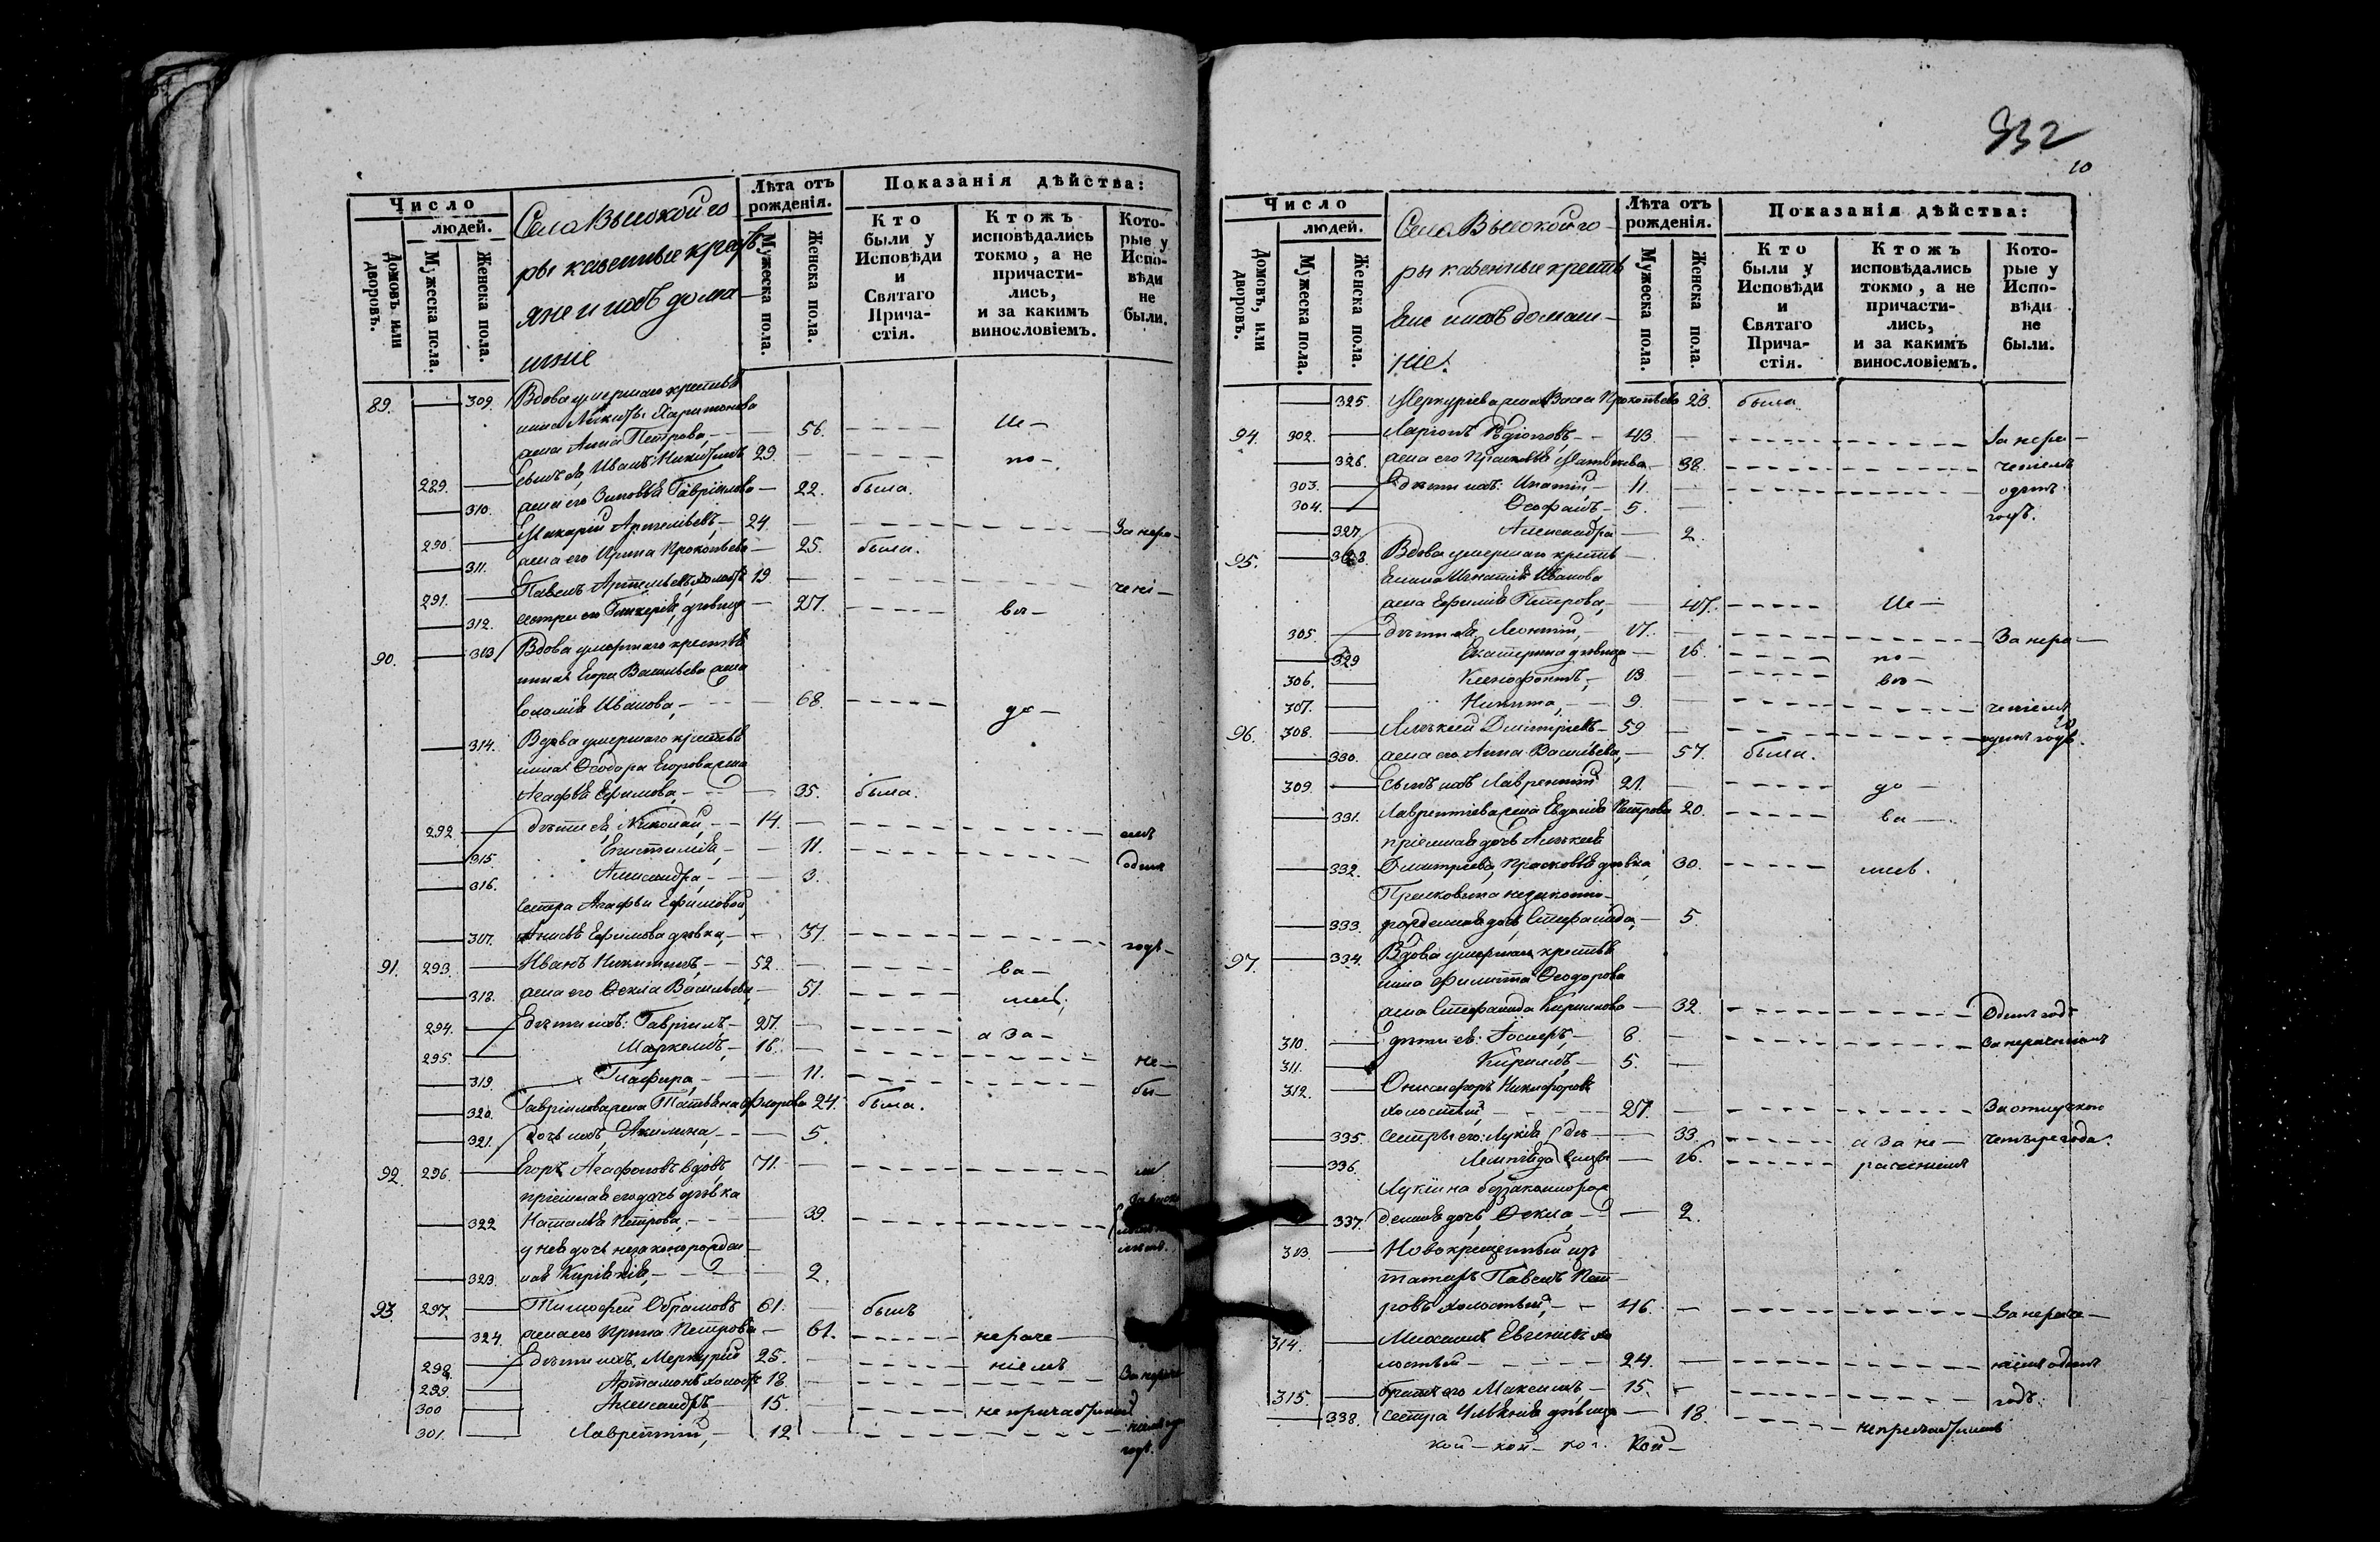 Число
людей.
Домовъ или дворовъ.
Мужеска пола.
Женска пола.
Села Высокой го
ры казенные кресть
яне и ихъ дома
шніе
Лѣта отъ рожденія.
Мужеска пола.
Женска пола.
Показанія дѣйства:
Кто были у Исповѣди и Святаго Прича-стія.
Ктожъ исповѣдались токмо, а не причасти-лись, и за какимъ винословіемъ.
Кото-рые у Испо-вѣди не были.
89. 309. Вдова умершаго крестья
нина Никиты Харитонова
жена Анна Петрова, 56. Не
289. Сынъ ея Иванъ Никитинъ 29. по
310. жена его Зиновья Гавріилова 22. была.
290. Макарій Артемьевъ, 24. За нера
311. жена его Ирина Прокопьева 25. была.
291. Павелъ Артемьевъ, холостъ 19. чені
312. сестра его Гликерія, дѣвица 27. во
90. 313. Вдова умершаго крестья
нина Егора Васильева жена
Соломія Иванова, 68. до
314. Вдова умершаго крестья
нина Ѳеодора Егорова жена
Агафья Ефимова, 35. была.
292. дѣти ея, Николай, 14. емъ
315. Епистимія, 11. одинъ
316. Александра, 3.
сестра Агафьи Ефимовой
317. Анисья Ефимова дѣвка, 37. годъ
91. 293. Иванъ Никитинъ, 52. ва
318. жена его Ѳекла Васильева, 51.
294. дѣти ихъ: Гавріилъ, 27. а за
295. Маркеллъ, 16. не
319. Глафира, 11. бы
320. Гавріилова жена Татьяна Флорова 24. была.
321. дочь ихъ, Акилина, 5.
92. 296. Егоръ Агафоновъ вдовъ 71.
пріемная его дочь дѣвка
322 Наталья Петрова, 39.
у нея дочь незаконорожден
323. ная Киріакія, 2.
93. 297. Тимофей Обрамовъ 61. былъ
324. жена его Ирина Петрова 61. нераче
298. дѣти ихъ, Меркурій 25. ніемъ
299. Артамонъ холостъ 18. За нераче
300 Александръ 15. не причастились
301. Лаврентій, 12
годъ.
332
10
Число
людей.
Домовъ, или дворовъ.
Мужеска пола.
Женска пола.
Села Высокой го
ры казенные кресть
яне и ихъ домаш
ніе.
Лѣта отъ рожденія.
Мужеска пола.
Женска пола.
Показанія дѣйства:
Кто были у Исповѣди и Святаго Прича-стія.
Ктожъ исповѣдались токмо, а не причасти-лись, и за какимъ винословіемъ.
Кото-рые у Испо-вѣди не были.
325. Меркурьева жена Васса Прокопьева 23. была.
94. 302. Ларіонъ Родіоновъ, 43. За нера
326. жена его Прасковья Матвѣева, 38. ченіемъ
303. дѣти ихъ: Игнатій, 11. одинъ
304. Ѳеофанъ, 5. годъ.
327. Александра 2.
95. 328. Вдова умершаго кресть
янина Игнатія Иванова
жена Ефимія Петрова, 47. Не
305. дѣти ея, Леонтій, 17. За нера
329 Екатерина дѣвица 16. по
306. Ксенофонтъ, 13 во
307. Никита, 9. ченіемъ
96. 308. Алексѣй Дмитріевъ 59 одинъ годъ.
330. жена его Анна Васильева, 57. была.
309. Сынъ ихъ Лаврентій 21. до
331. Лаврентіева жена Евдокія Петрова 20. ва
пріемная дочь Алексѣя
332. Дмитріева, Прасковья дѣвка, 30. ніемъ.
Прасковьина незаконно
333. рожденная дочь, Стефанида, 5.
97. 334. Вдова умершаго крестья
нина Филиппа Ѳеодорова
жена Стефанида Кирилова 32. Одинъ годъ
310. дѣти ея: Іосифъ, 8. За нераченіемъ
311. Кириллъ, 5.
312. Онисифоръ Никифоровъ
холостый 27. За отлучкою
335. сестры его: Лукія дѣ 33. а за не четыре года.
336. Леонида вицы 16. раченіемъ
Лукіина беззаконнорож
337. денная дочь, Ѳекла, 2.
313 Новокрещенный изъ
татаръ Павелъ Пет
ровъ холостый, 46. За нераче
314. Михаилъ Евгеніевъ хо
лостый 24. ніемъ одинъ
315. братъ его Максимъ 15. годъ.
338. сестра Ульянія дѣвица 18 не причастились
кой кой ко. Кой